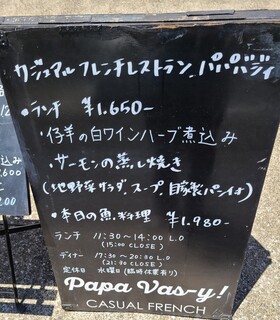 カジュアルフレンチレストラン パパバジィ
・ランチ ¥1.650-
・仔羊の白ワインハーブ煮込み
・サーモンの蒸し焼き
(地野菜サラダ、スープ、自家製パン付)
・本日の魚料理 ¥1.980-
ランチ 11:30~14:00 L.O
(15:00 CLOSE)
ディナー 17:30~20:30 L.O
(21:30 CLOSE)
定休日 水曜日(臨時休業有り)
Papa Vas-y!
CASUAL FRENCH